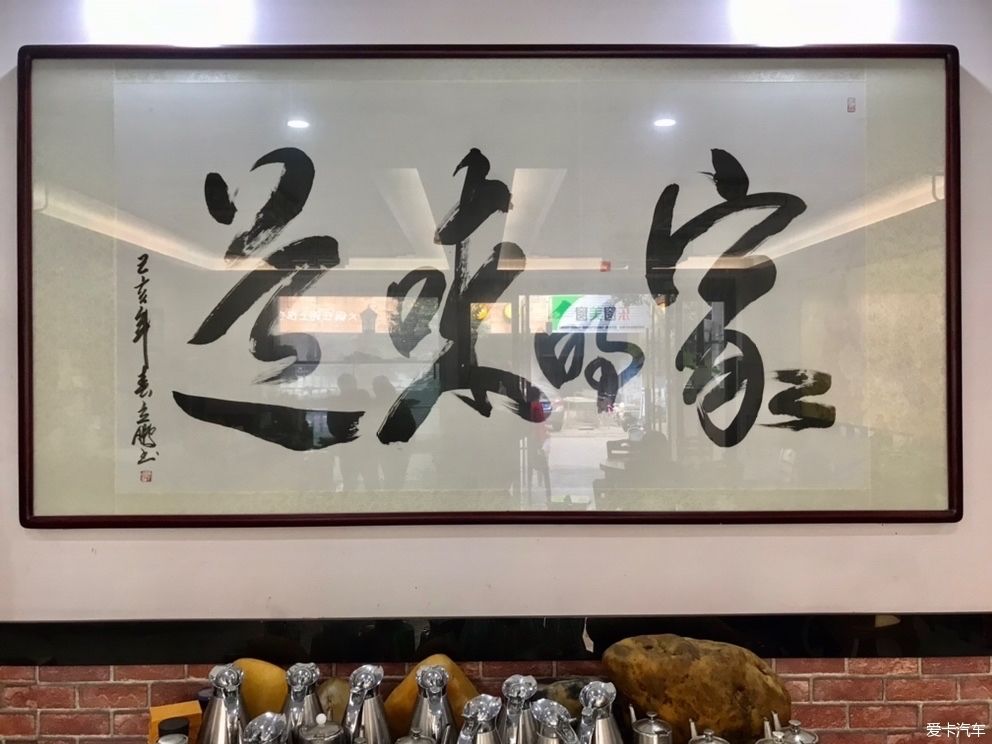 家的味道
己亥年春立鹏书
爱卡汽车